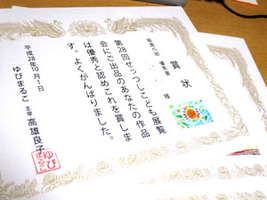 賞状
絵画の部 優秀賞
様
第28回せっつしこども展覧
会にご出品のあなたの作品
は優秀と認めこれを賞しま
す。よくがんばりました。
平成28年10月1日
ゆびまるこ 主宰 高雄良子